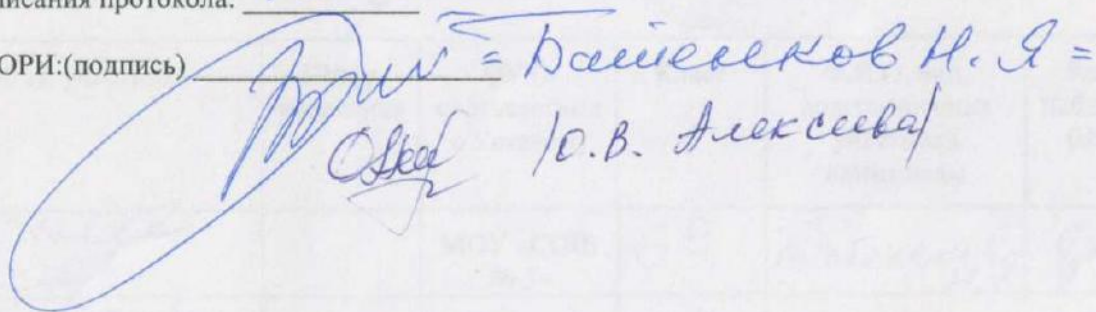 писания протокола:
ОРИ:(подпись) = Батенков Н. Я =
/О.В. Алексеева/